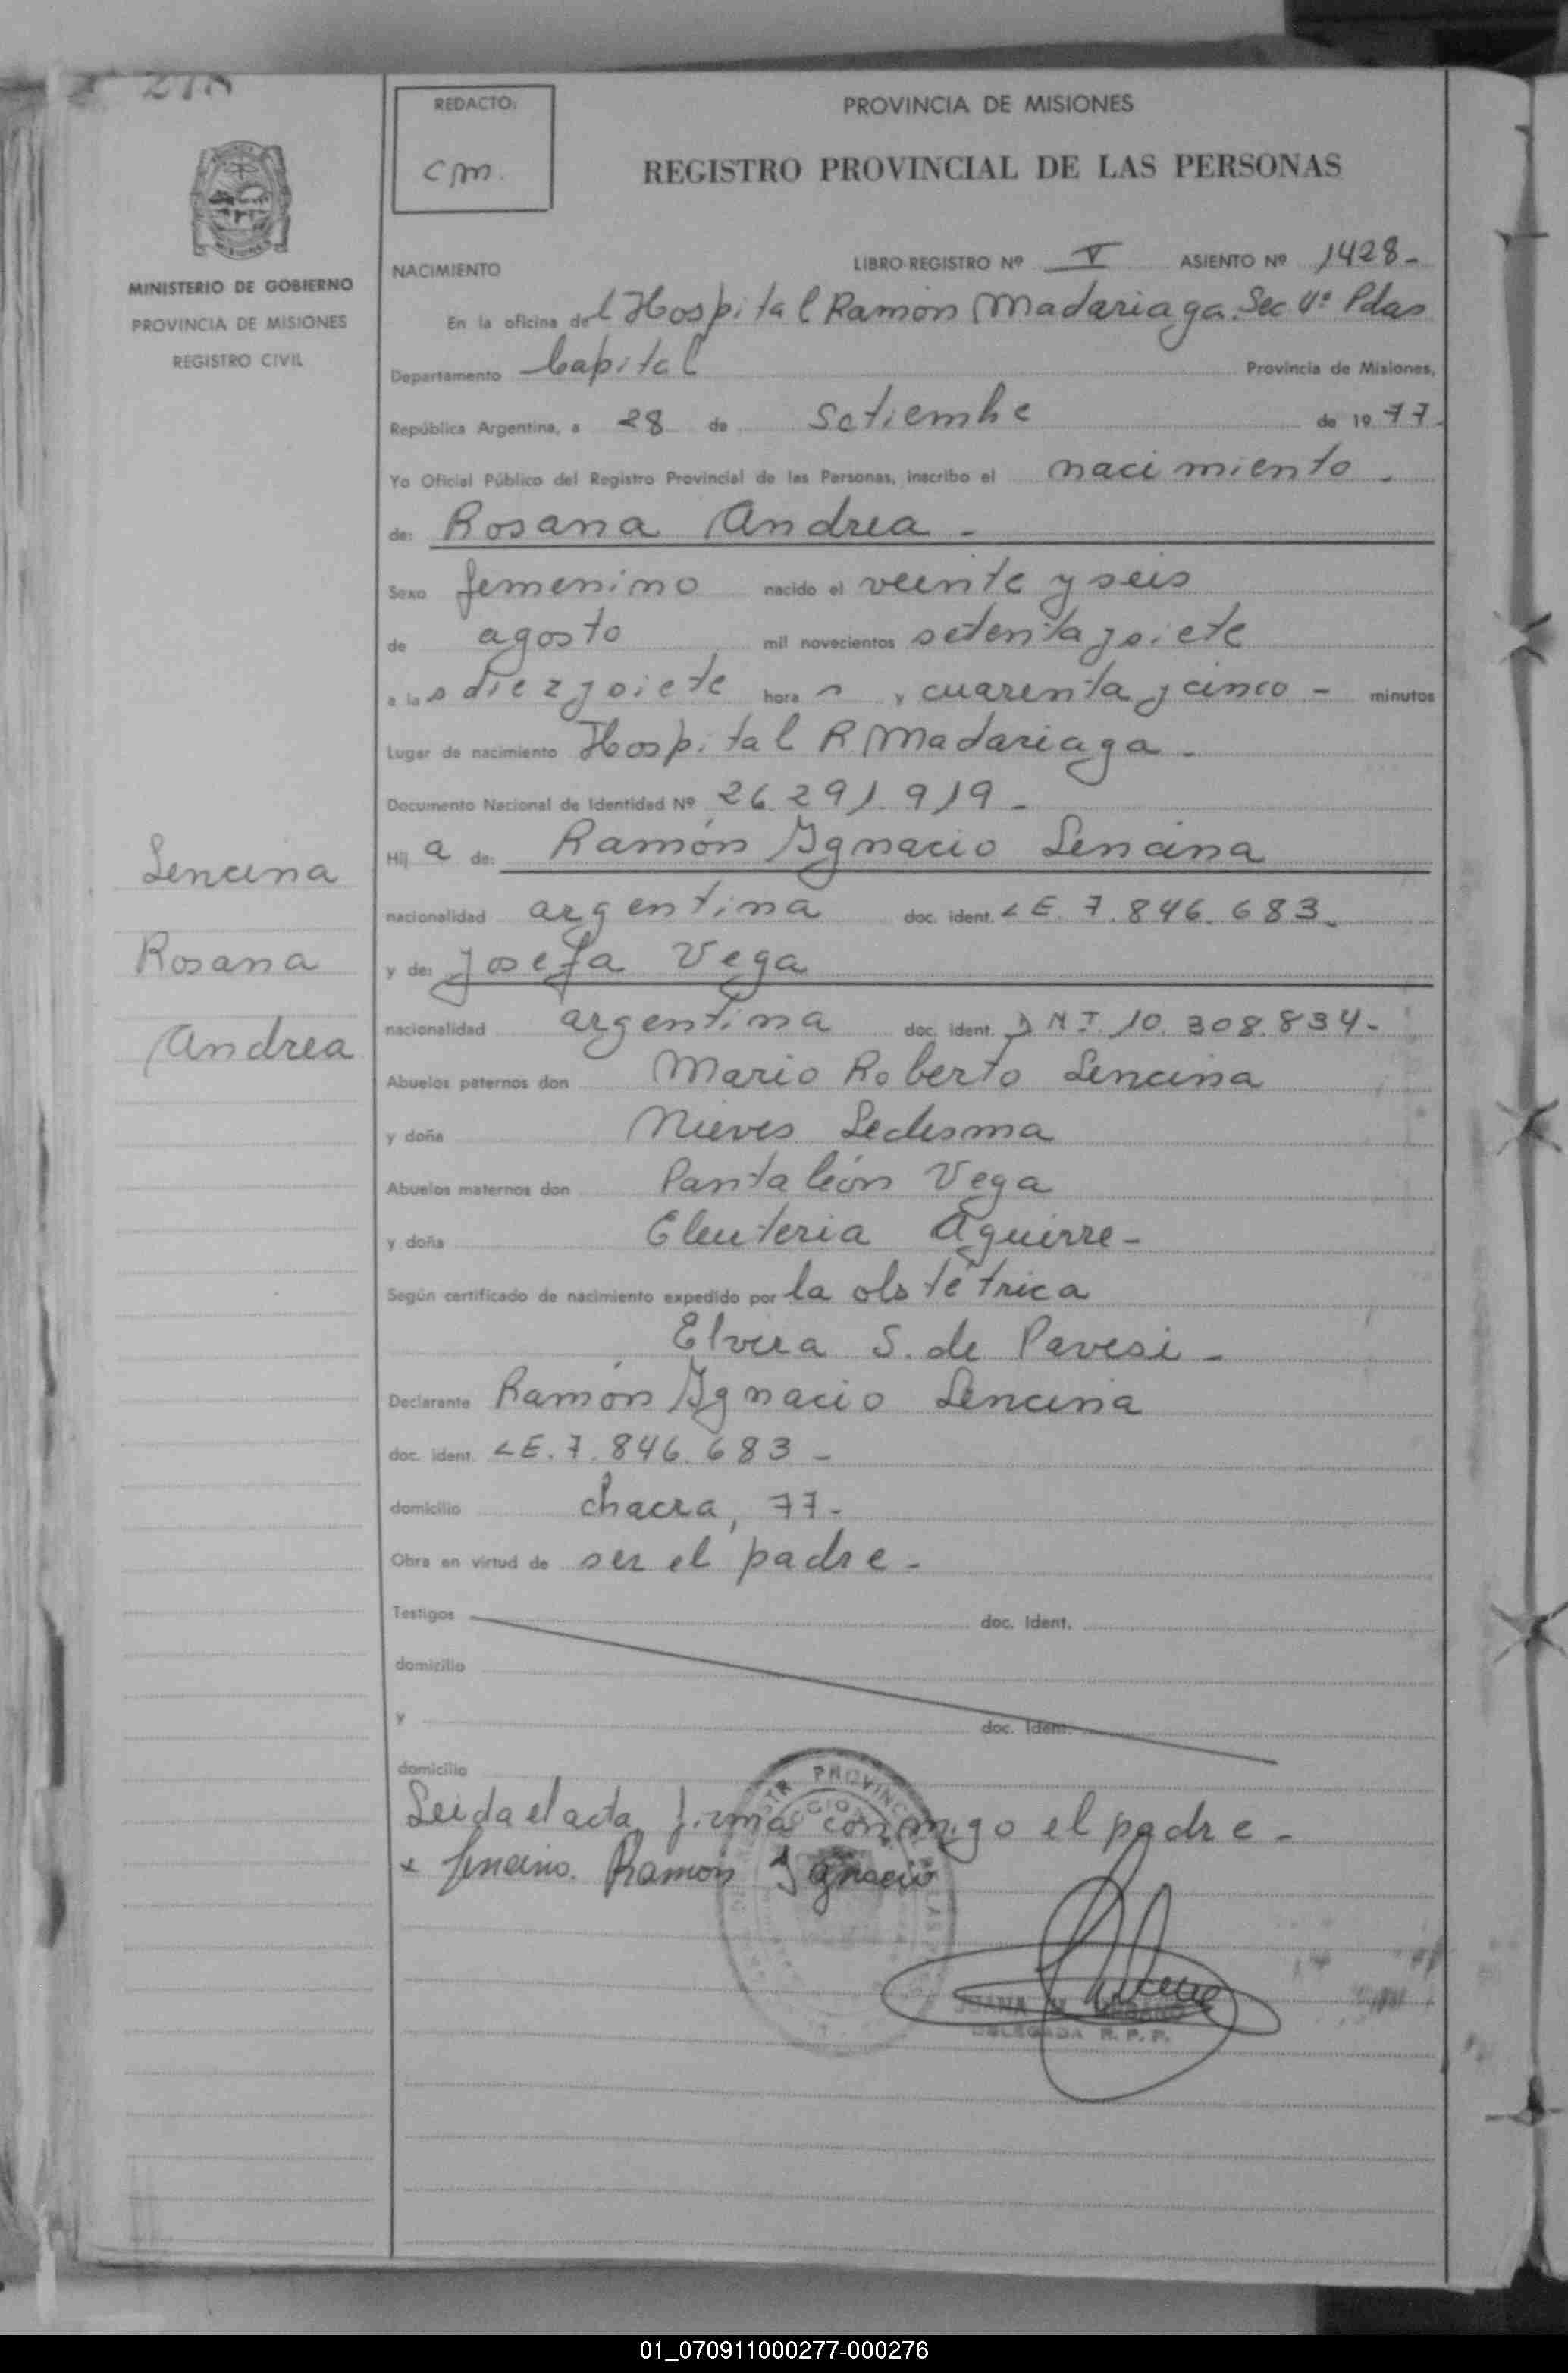 REDACTO:
cm.
PROVINCIA DE MISIONES
REGISTRO PROVINCIAL DE LAS PERSONAS
MINISTERIO DE GOBIERNO
PROVINCIA DE MISIONES
REGISTRO CIVIL
NACIMIENTO LIBRO-REGISTRO Nº V ASIENTO Nº 1428-
En la oficina del Hospital Ramón Madariaga. Sec 4ª Pdas
Departamento Capital Provincia de Misiones,
República Argentina, a 28 de Setiembre de 1977-
Yo Oficial Público del Registro Provincial de las Personas, inscribo el nacimiento -
de: Rosana Andrea -
Sexo femenino nacido el veinte y seis
de agosto mil novecientos setenta y siete
a las diez y siete horas y cuarenta y cinco - minutos
Lugar de nacimiento Hospital R. Madariaga -
Documento Nacional de Identidad Nº 26.291.919 -
Hija de: Ramón Ignacio Lencina
nacionalidad argentina doc. ident. LE. 7.846.683-
y de: Josefa Vega
nacionalidad argentina doc. ident. DNI. 10.308.834-
Abuelos paternos don Mario Roberto Lencina
y doña Nieves Ledesma
Abuelos maternos don Pantaleón Vega
y doña Eleuteria Aguirre-
Según certificado de nacimiento expedido por la obstétrica
Elvira S. de Pavesi -
Declarante Ramón Ignacio Lencina
doc. ident. LE. 7.846.683 -
domicilio chacra, 77-
Obra en virtud de ser el padre -
Testigos doc. Ident.
domicilio
y doc. Ident.
domicilio
Leida el acta, firma conmigo el padre -
x Lencina. Ramon Ignacio
JUANA
DELEGADA R. P. P.
Lencina
Rosana
Andrea
01_070911000277-000276